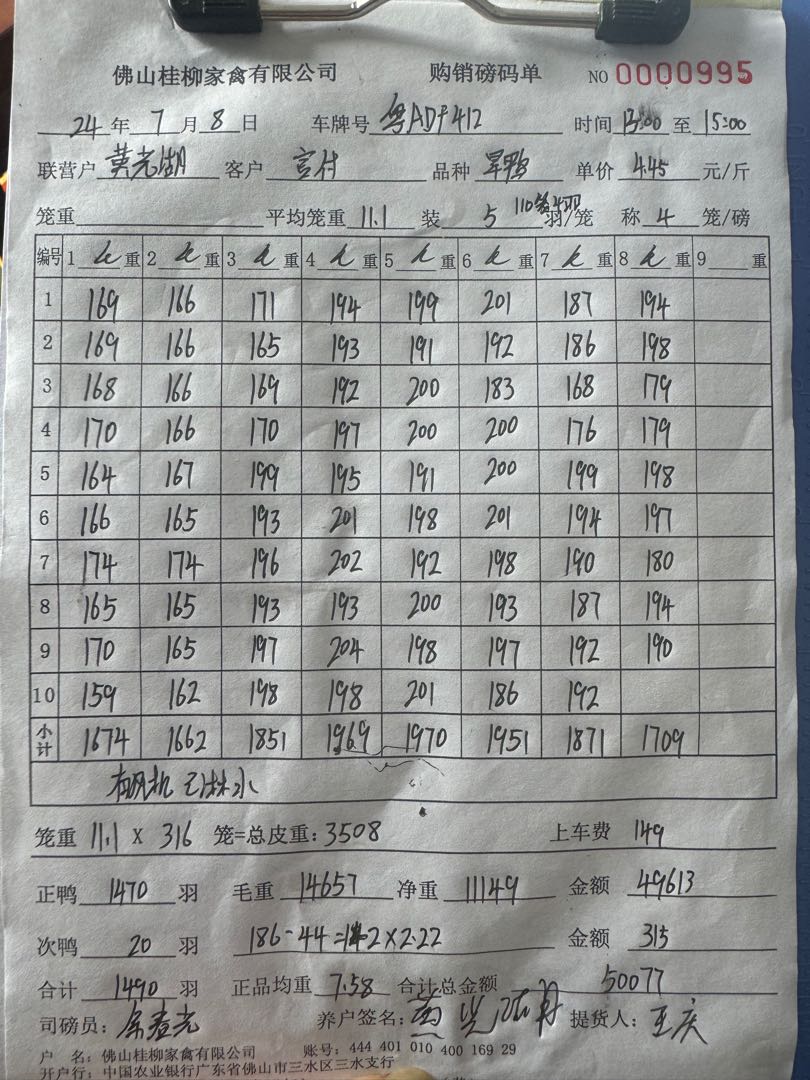 佛山桂柳家禽有限公司 购销磅码单 NO 0000995
24年7月8日 车牌号 粤ADF412 时间 13:00 至 15:00
联营户 黄光湖 客户 言付 品种 旱鸭 单价 4.45 元/斤
笼重 平均笼重 11.1 装 5 羽/笼 称 4 笼/磅
编号 1 毛 重 2 毛 重 3 毛 重 4 毛 重 5 毛 重 6 毛 重 7 毛 重 8 毛 重 9 重
1 169 166 171 194 199 201 187 194
2 169 166 165 193 191 192 186 198
3 168 166 169 192 200 183 168 179
4 170 166 170 197 200 200 176 179
5 164 167 199 195 191 200 199 198
6 166 165 193 201 198 201 194 197
7 174 174 196 202 192 198 190 180
8 165 165 193 193 200 193 187 194
9 170 165 197 204 198 197 192 190
10 159 162 198 198 201 186 192
小计 1674 1662 1851 1969 1970 1951 1871 1709
淋水
笼重 11.1 X 316 笼=总皮重: 3508 上车费 149
正鸭 1470 羽 毛重 14657 净重 11149 金额 49613
次鸭 20 羽 186-44=142×2.22 金额 315
合计 1490 羽 正品均重 7.58 合计总金额 50077
司磅员: 养户签名: 提货人: 王庆
户 名: 佛山桂柳家禽有限公司 账号: 444 401 010 400 169 29
开户行: 中国农业银行广东省佛山市三水区三水支行